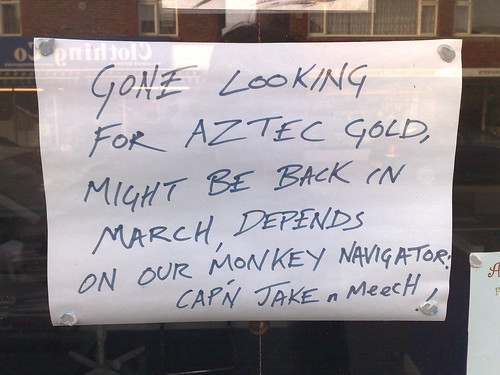 Clothing Co
GONE LOOKING
FOR AZTEC GOLD,
MIGHT BE BACK IN
MARCH, DEPENDS
ON OUR MONKEY NAVIGATOR!
CAP'N JAKE n MeecH!
A